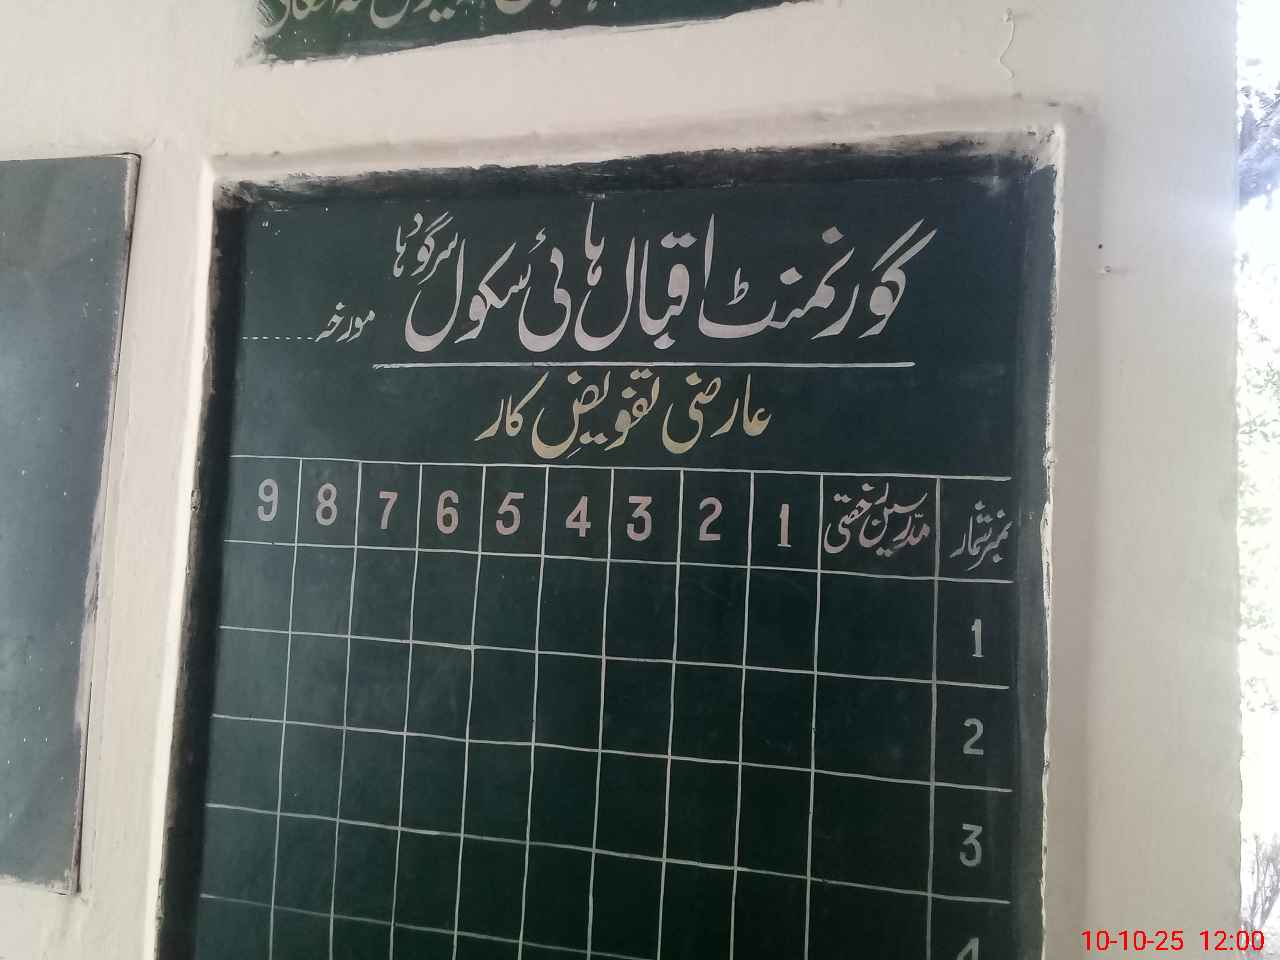 گورنمنٹ اقبال ہائی سکول سرگودہا
مورخہ
عارضی تفویضِ کار
نمبر شمار مدرسین رخصتی 1 2 3 4 5 6 7 8 9
1
2
3
4
10-10-25 12:00